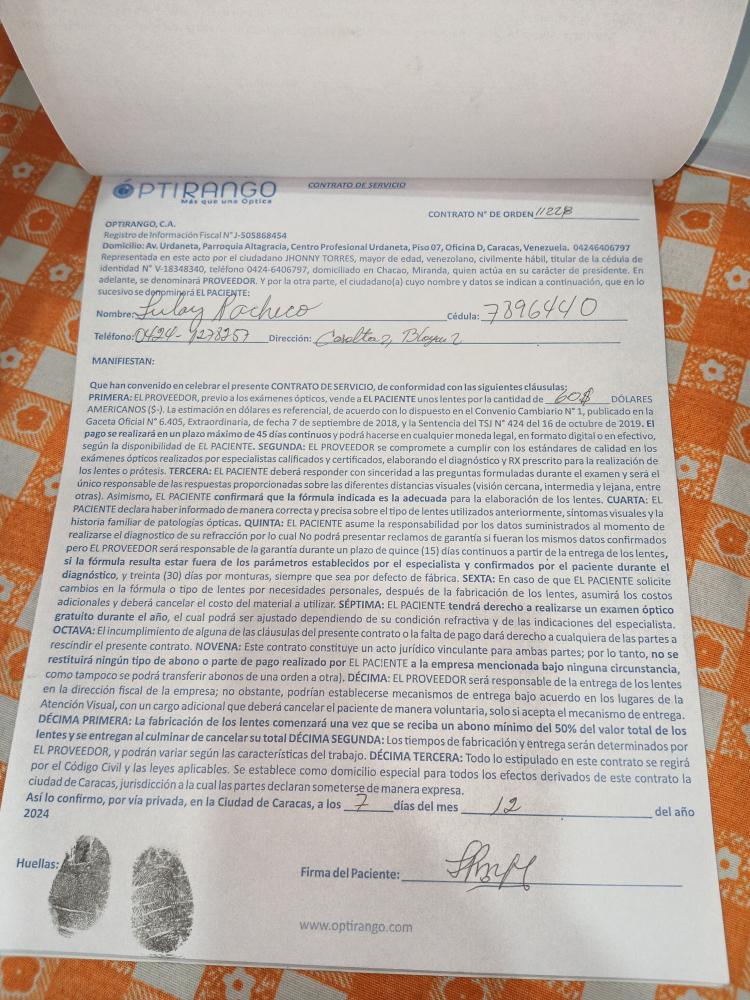 ÓPTIRANGO
Más que una Óptica
CONTRATO DE SERVICIO
CONTRATO N° DE ORDEN 11228
OPTIRANGO, C.A.
Registro de Información Fiscal N°J-505868454
Domicilio: Av. Urdaneta, Parroquia Altagracia, Centro Profesional Urdaneta, Piso 07, Oficina D, Caracas, Venezuela. 04246406797
Representada en este acto por el ciudadano JHONNY TORRES, mayor de edad, venezolano, civilmente hábil, titular de la cédula de
identidad N° V-18348340, teléfono 0424-6406797, domiciliado en Chacao, Miranda, quien actúa en su carácter de presidente. En
adelante, se denominará PROVEEDOR. Y por la otra parte, el ciudadano(a) cuyo nombre y datos se indican a continuación, que en lo
sucesivo se denominará EL PACIENTE:
Nombre: Zulay Pacheco Cédula: 7896440
Teléfono: 0424- Dirección: Bloque 2
MANIFIESTAN:
Que han convenido en celebrar el presente CONTRATO DE SERVICIO, de conformidad con las siguientes cláusulas;
PRIMERA: EL PROVEEDOR, previo a los exámenes ópticos, vende a EL PACIENTE unos lentes por la cantidad de 60$ DÓLARES
AMERICANOS ($-). La estimación en dólares es referencial, de acuerdo con lo dispuesto en el Convenio Cambiario N° 1, publicado en la
Gaceta Oficial N° 6.405, Extraordinaria, de fecha 7 de septiembre de 2018, y la Sentencia del TSJ N° 424 del 16 de octubre de 2019. El
pago se realizará en un plazo máximo de 45 días continuos y podrá hacerse en cualquier moneda legal, en formato digital o en efectivo,
según la disponibilidad de EL PACIENTE. SEGUNDA: EL PROVEEDOR se compromete a cumplir con los estándares de calidad en los
exámenes ópticos realizados por especialistas calificados y certificados, elaborando el diagnóstico y RX prescrito para la realización de
los lentes o prótesis. TERCERA: EL PACIENTE deberá responder con sinceridad a las preguntas formuladas durante el examen y será el
único responsable de las respuestas proporcionadas sobre las diferentes distancias visuales (visión cercana, intermedia y lejana, entre
otras). Asimismo, EL PACIENTE confirmará que la fórmula indicada es la adecuada para la elaboración de los lentes. CUARTA: EL
PACIENTE declara haber informado de manera correcta y precisa sobre el tipo de lentes utilizados anteriormente, síntomas visuales y la
historia familiar de patologías ópticas. QUINTA: EL PACIENTE asume la responsabilidad por los datos suministrados al momento de
realizarse el diagnostico de su refracción por lo cual No podrá presentar reclamos de garantía si fueran los mismos datos confirmados
pero EL PROVEEDOR será responsable de la garantía durante un plazo de quince (15) días continuos a partir de la entrega de los lentes,
si la fórmula resulta estar fuera de los parámetros establecidos por el especialista y confirmados por el paciente durante el
diagnóstico, y treinta (30) días por monturas, siempre que sea por defecto de fábrica. SEXTA: En caso de que EL PACIENTE solicite
cambios en la fórmula o tipo de lentes por necesidades personales, después de la fabricación de los lentes, asumirá los costos
adicionales y deberá cancelar el costo del material a utilizar. SÉPTIMA: EL PACIENTE tendrá derecho a realizarse un examen óptico
gratuito durante el año, el cual podrá ser ajustado dependiendo de su condición refractiva y de las indicaciones del especialista.
OCTAVA: El incumplimiento de alguna de las cláusulas del presente contrato o la falta de pago dará derecho a cualquiera de las partes a
rescindir el presente contrato. NOVENA: Este contrato constituye un acto jurídico vinculante para ambas partes; por lo tanto, no se
restituirá ningún tipo de abono o parte de pago realizado por EL PACIENTE a la empresa mencionada bajo ninguna circunstancia,
como tampoco se podrá transferir abonos de una orden a otra). DÉCIMA: EL PROVEEDOR será responsable de la entrega de los lentes
en la dirección fiscal de la empresa; no obstante, podrían establecerse mecanismos de entrega bajo acuerdo en los lugares de la
Atención Visual, con un cargo adicional que deberá cancelar el paciente de manera voluntaria, solo si acepta el mecanismo de entrega.
DÉCIMA PRIMERA: La fabricación de los lentes comenzará una vez que se reciba un abono mínimo del 50% del valor total de los
lentes y se entregan al culminar de cancelar su total DÉCIMA SEGUNDA: Los tiempos de fabricación y entrega serán determinados por
EL PROVEEDOR, y podrán variar según las características del trabajo. DÉCIMA TERCERA: Todo lo estipulado en este contrato se regirá
por el Código Civil y las leyes aplicables. Se establece como domicilio especial para todos los efectos derivados de este contrato la
ciudad de Caracas, jurisdicción a la cual las partes declaran someterse de manera expresa.
Así lo confirmo, por vía privada, en la Ciudad de Caracas, a los 7 días del mes 12 del año
2024
Huellas:
Firma del Paciente:
www.optirango.com